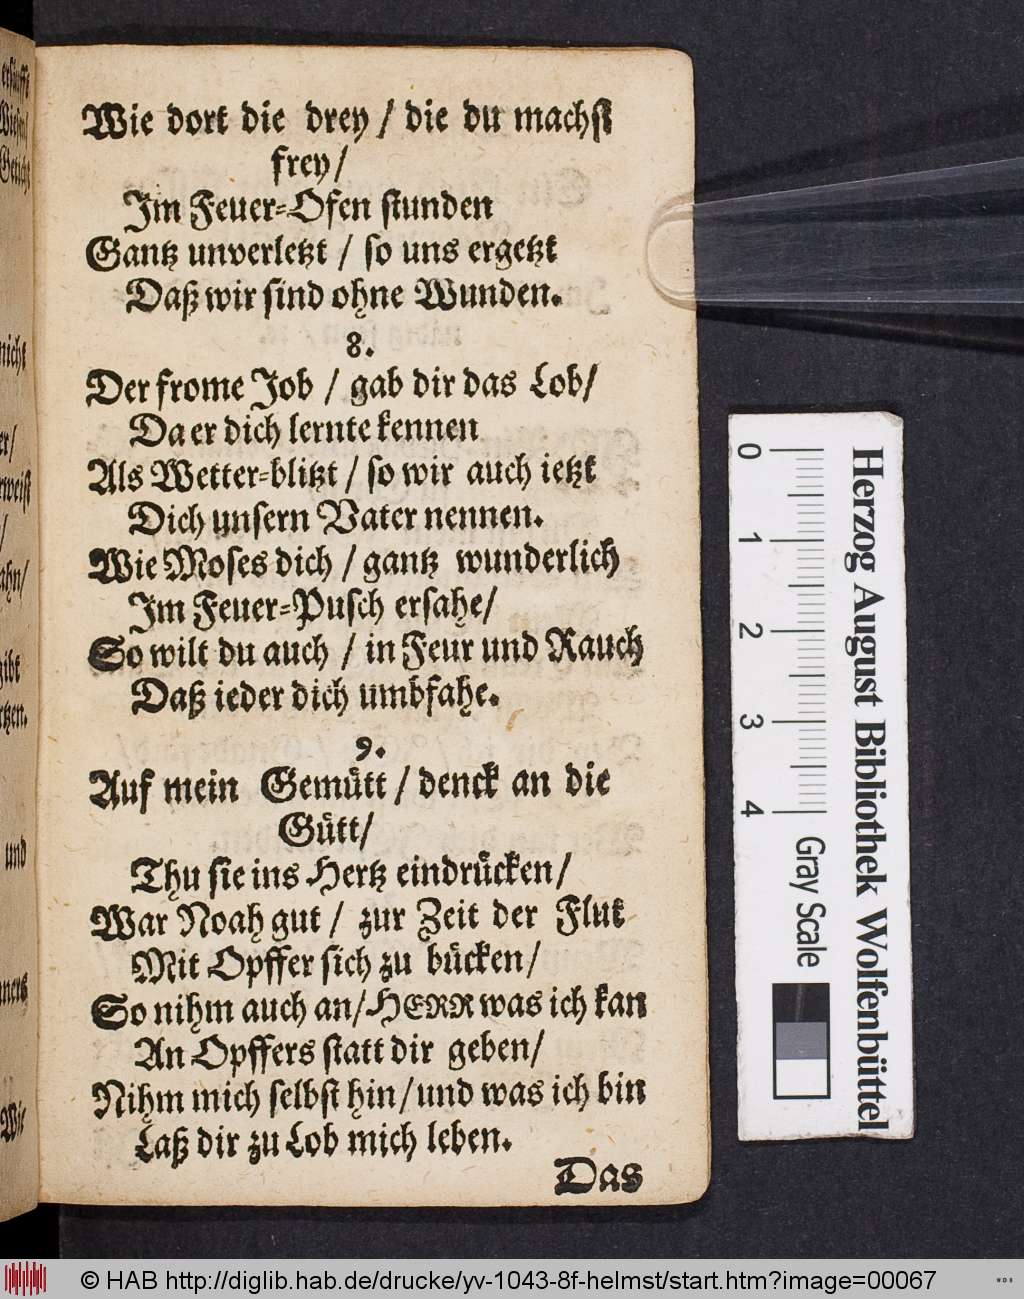 Wie dort die drey / die du machst
frey/
Im Feuer-Ofen stunden
Gantz unverletzt / so uns ergetzt
Daß wir sind ohne Wunden.
8.
Der frome Job / gab dir das Lob/
Da er dich lernte kennen
Als Wetter-blitzt / so wir auch ietzt
Dich unsern Vater nennen.
Wie Moses dich / gantz wunderlich
Im Feuer-Pusch ersahe/
So wilt du auch / in Feur und Rauch
Daß ieder dich umbfahe.
9.
Auf mein Gemütt / denck an die
Gütt/
Thu sie ins Hertz eindrücken/
War Noah gut / zur Zeit der Flut
Mit Opffer sich zu bücken/
So nihm auch an/HERR was ich kan
An Opffers statt dir geben/
Nihm mich selbst hin/und was ich bin
Laß dir zu Lob mich leben.
Das
nicht
er/
/
ahn/
und
Wie
0 1 2 3 4
Gray Scale
Herzog August Bibliothek Wolfenbüttel
© HAB http://diglib.hab.de/drucke/yv-1043-8f-helmst/start.htm?image=00067